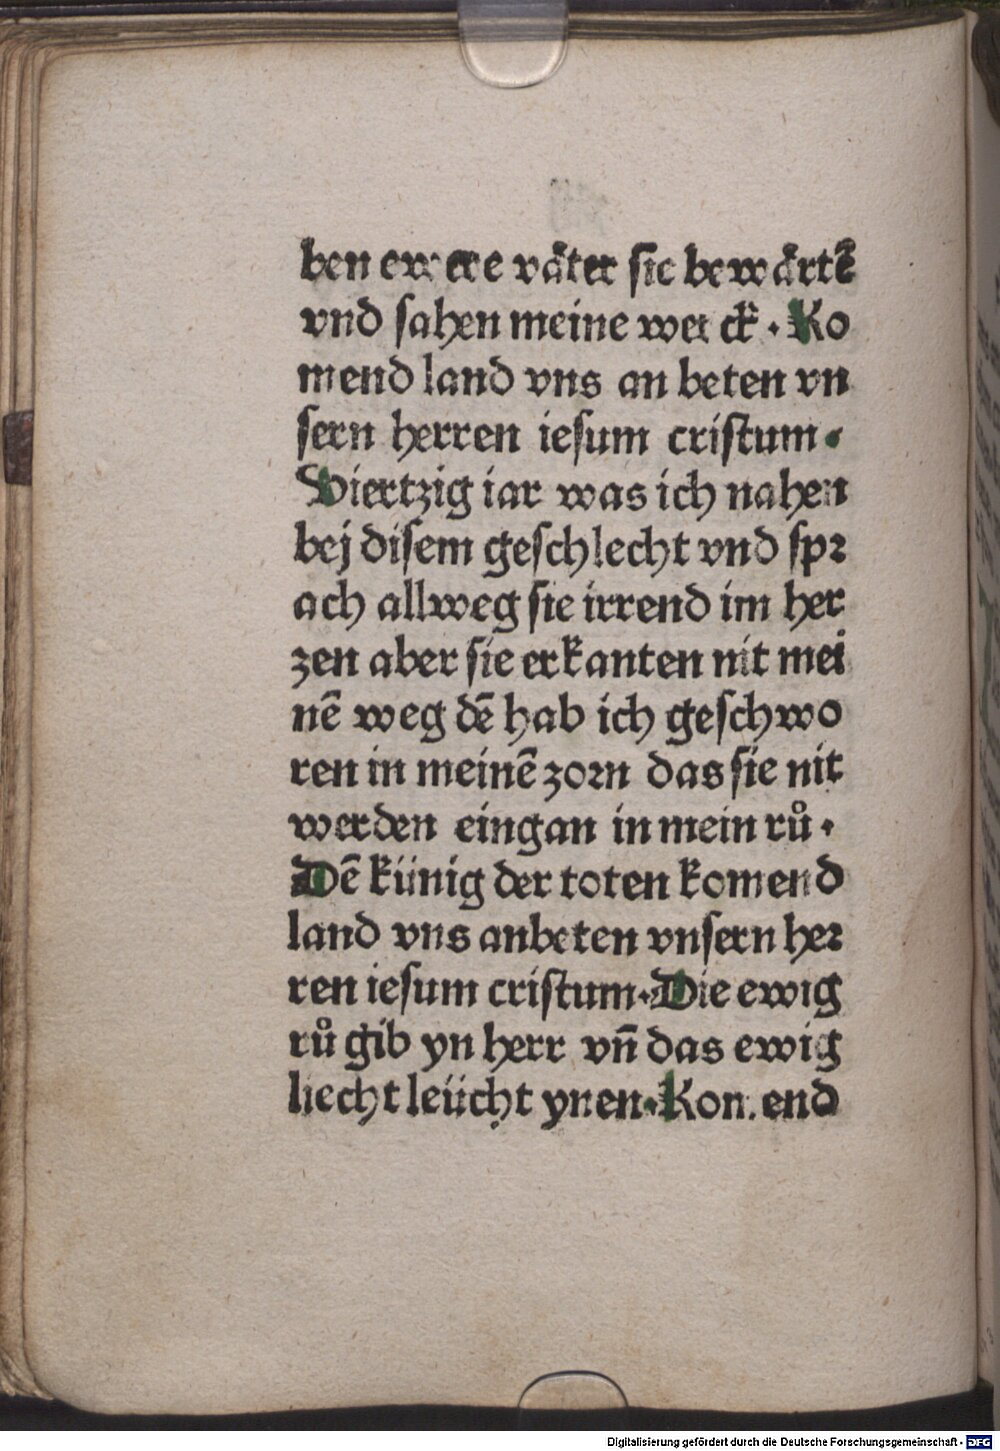 ben ewere våter sie bewårtē
vnd sahen meine werck̄ . Ko
mend land vns an beten vn
sern herren iesum cristum.
Viertzig iar was ich nahen
bej disem geschlecht vnd spr
ach allweg sie irrend im her
zen aber sie erkanten nit mei
nē weg dē hab ich geschwo
ren in meinē zorn das sie nit
werden eingan in mein rů.
Dē künig der toten komend
land vns anbeten vnsern her
ren iesum cristum. Die ewig
rů gib yn herr vn̄ das ewig
liecht leücht ynen. Komend
Digitalisierung gefördert durch die Deutsche Forschungsgemeinschaft - DFG